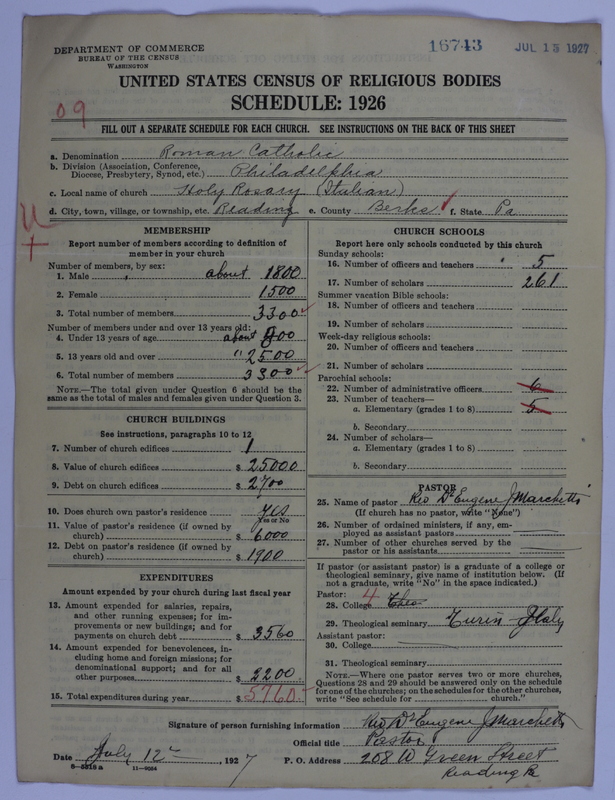 DEPARTMENT OF COMMERCE
BUREAU OF THE CENSUS
WASHINGTON
16743
JUL 15 1927
UNITED STATES CENSUS OF RELIGIOUS BODIES
SCHEDULE: 1926
09
FILL OUT A SEPARATE SCHEDULE FOR EACH CHURCH. SEE INSTRUCTIONS ON THE BACK OF THIS SHEET
a. Denomination Roman Catholic
b. Division (Association, Conference, Diocese, Presbytery, Synod, etc.) Philadelphia
c. Local name of church Holy Rosary (Italian)
d. City, town, village, or township, etc. Reading e. County Berks f. State Pa
MEMBERSHIP
Report number of members according to definition of
member in your church
Number of members, by sex:
1. Male about 1800
2. Female 1500
3. Total number of members 3300
Number of members under and over 13 years old:
4. Under 13 years of age about 800
5. 13 years old and over " 2500
6. Total number of members 3300
NOTE.—The total given under Question 6 should be the
same as the total of males and females given under Question 3.
CHURCH BUILDINGS
See instructions, paragraphs 10 to 12
7. Number of church edifices 1
8. Value of church edifices $ 25000
9. Debt on church edifices $ 2700
10. Does church own pastor's residence yes
Yes or No
11. Value of pastor's residence (if owned by
church) $ 6000
12. Debt on pastor's residence (if owned by
church) $ 1900
EXPENDITURES
Amount expended by your church during last fiscal year
13. Amount expended for salaries, repairs,
and other running expenses; for im-
provements or new buildings; and for
payments on church debt $ 3560
14. Amount expended for benevolences, in-
cluding home and foreign missions; for
denominational support; and for all
other purposes $ 2200
15. Total expenditures during year $ 5760
CHURCH SCHOOLS
Report here only schools conducted by this church
Sunday schools:
16. Number of officers and teachers 5
17. Number of scholars 261
Summer vacation Bible schools:
18. Number of officers and teachers
19. Number of scholars
Week-day religious schools:
20. Number of officers and teachers
21. Number of scholars
Parochial schools:
22. Number of administrative officers 6
23. Number of teachers—
a. Elementary (grades 1 to 8) 5
b. Secondary
24. Number of scholars—
a. Elementary (grades 1 to 8)
b. Secondary
PASTOR
25. Name of pastor Rev Dr Eugene J Marchetti
(If church has no pastor, write "None")
26. Number of ordained ministers, if any, em-
ployed as assistant pastors
27. Number of other churches served by the
pastor or his assistants
If pastor (or assistant pastor) is a graduate of a college or
theological seminary, give name of institution below. (If
not a graduate, write "No" in the space indicated.)
Pastor: 4
28. College Theo
29. Theological seminary Turin Italy
Assistant pastor:
30. College
31. Theological seminary
NOTE.—Where one pastor serves two or more churches,
Questions 28 and 29 should be answered only on the schedule
for one of the churches; on the schedules for the other churches,
write "See schedule for church."
Signature of person furnishing information Rev Dr Eugene J Marchetti
Official title Pastor
Date July 12 1927 P. O. Address 208 W Green Street
8—5316 a 11—9064 Reading Pa